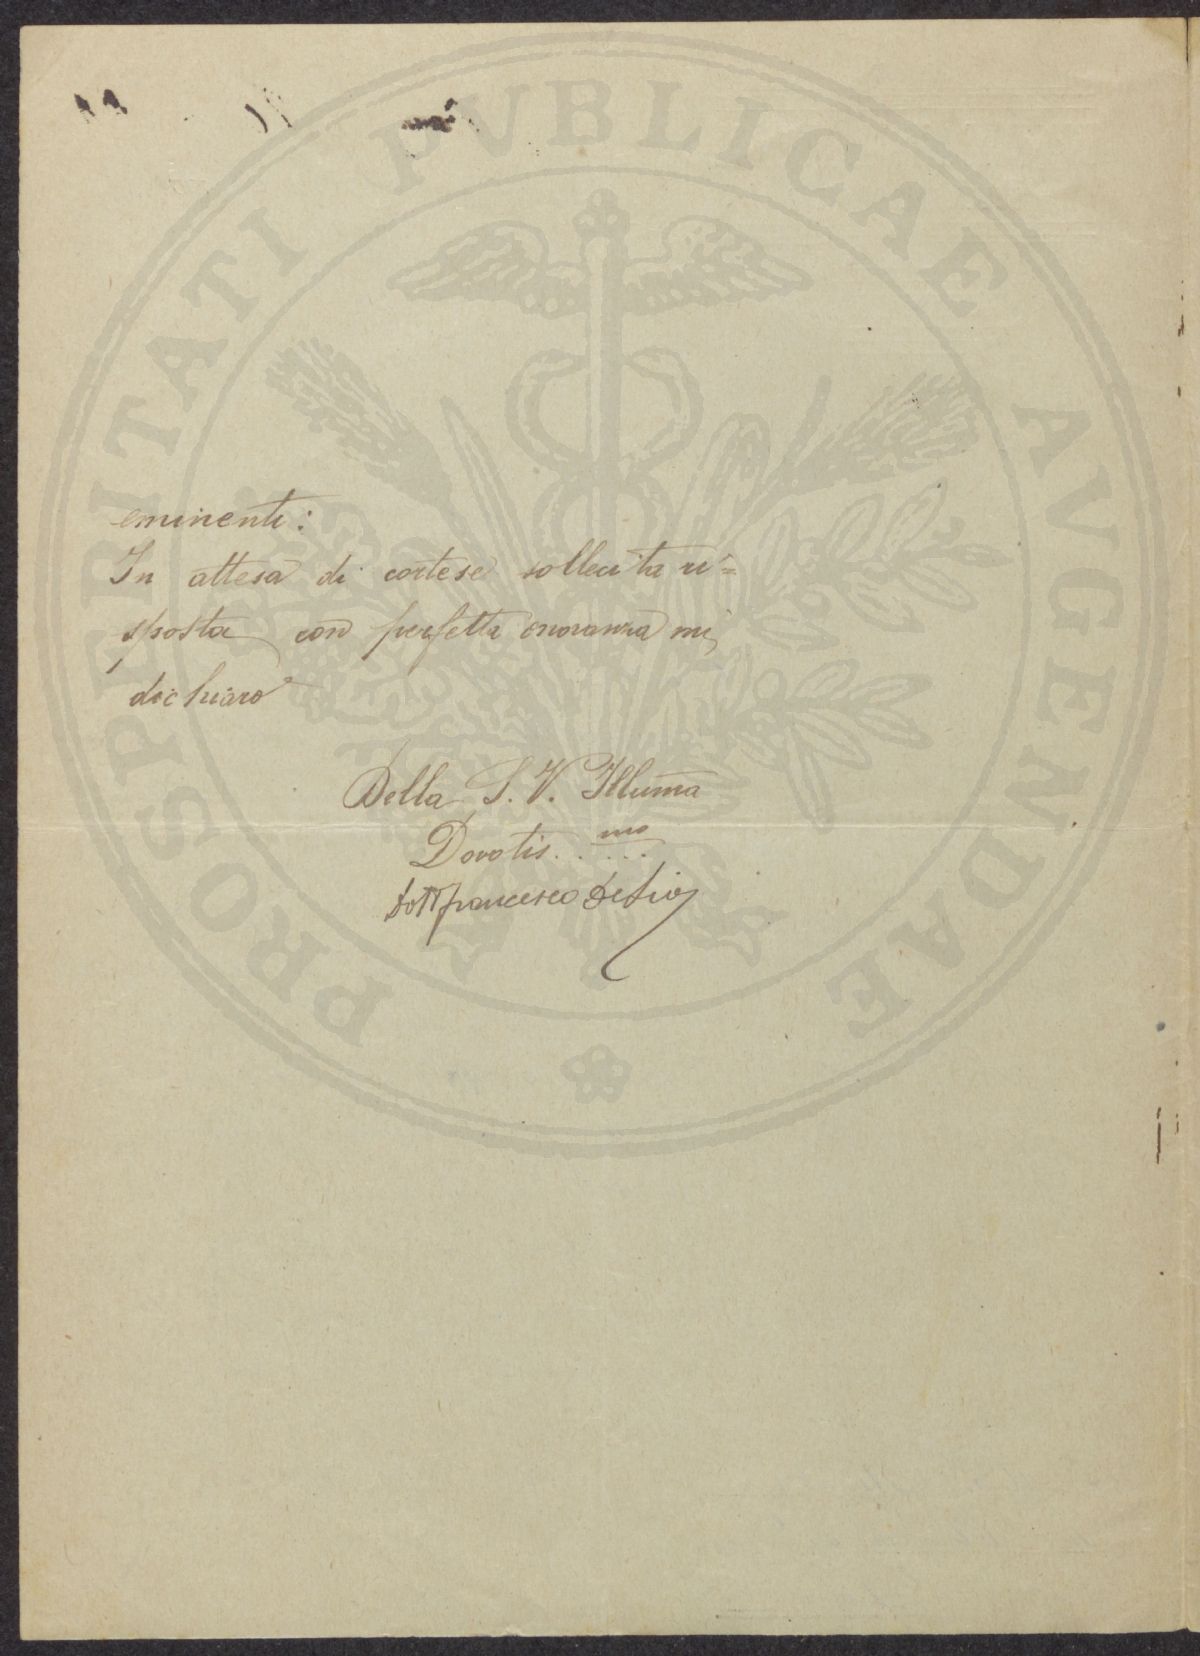 PROSPERITATI PVBLICAE AVGENDAE
eminenti:
In attesa di cortese sollecita ri=
sposta con perfetta onoranza mi
dichiaro
Della S. V. Illuma
Devotis...mo
Dott Francesco De Sio